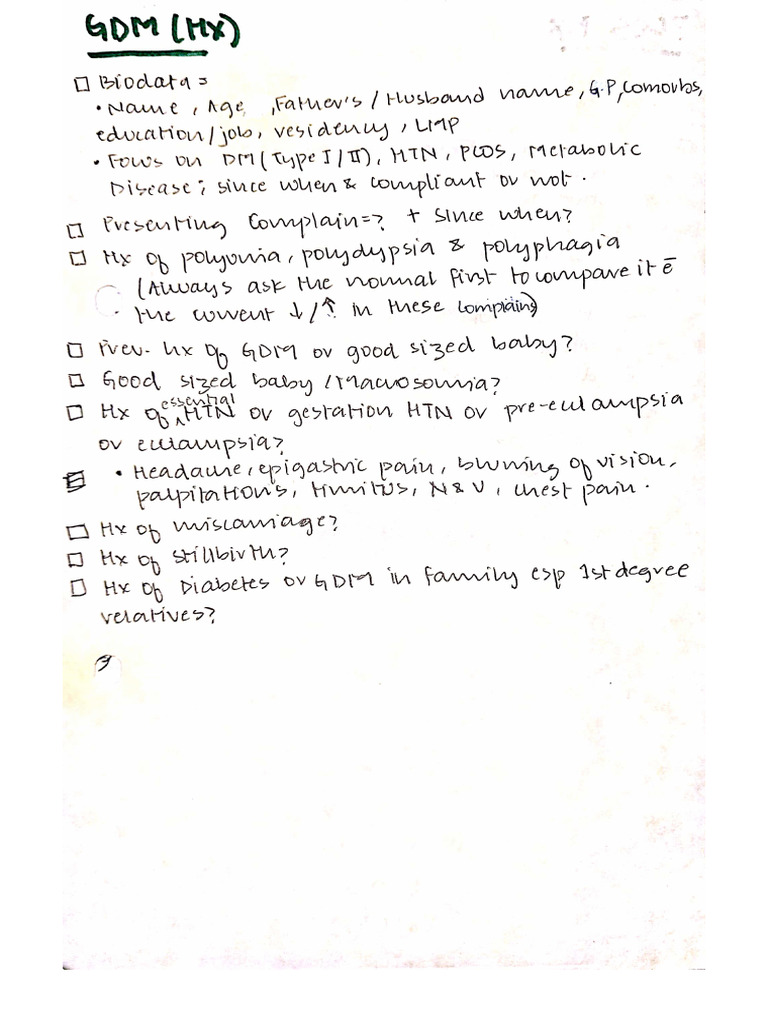 GDM (Hx)
Biodata =
• Name, Age, Father's / Husband name, G.P, comorbs,
education/job, residency, LMP
• Focus on DM (Type I / II), HTN, PCOS, Metabolic
Disease; since when & compliant or not.
Presenting Complain =? + since when?
Hx of polyuria, polydypsia & polyphagia
(Always ask the normal first to compare it c̄
the current ↓/↑ in these complains)
Prev. hx of GDM or good sized baby?
Good sized baby / Macrosomia?
essential
Hx of ^ HTN or gestation HTN or pre-eclampsia
or eclampsia?
• Headache, epigastric pain, blurring of vision,
palpitations, tinnitus, N & V, chest pain.
Hx of miscarriage?
Hx of stillbirth?
Hx of Diabetes or GDM in family esp 1st degree
relatives?